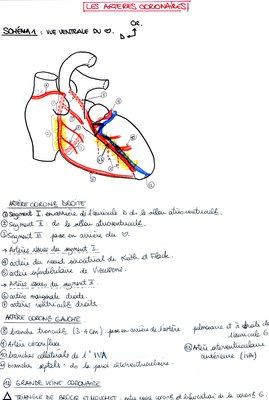 LES ARTERES CORONAIRES
CR.
D
SCHÉMA 1 : VUE VENTRALE DU ♡.
ARTÈRE CORONR DROITE
① Segment I : en arrière de l'auricule D ds le sillon atrioventriculR.
② Segment II : ds le sillon atrioventriculR.
③ Segment III : passe en arrière du ♡.
→ Artères issues du segment I.
④ artère du nœud sinoatrial de Keith et Flack.
⑤ artère infundibulaire de Vieussens.
→ Artères issues du segment II.
⑥ artère marginale droite.
⑦ artères ventriculR droite.
ARTÈRE CORONR GAUCHE
⑧ branche tronculR (3-4cm) : passe en arrière de l'artère pulmonaire et à droite de l'auricule G
⑨ Artère circonflexe
⑩ branches collatérales de l'IVA
⑪ branches septales : ds la paroi interventriculaire
Artère interventriculaire antérieure (IVA)
⑫ GRANDE VEINE CORONAIRE
△ TRIANGLE DE BROCQ ET MOUCHET : entre veine coronR et bifurcation de la coronR G.